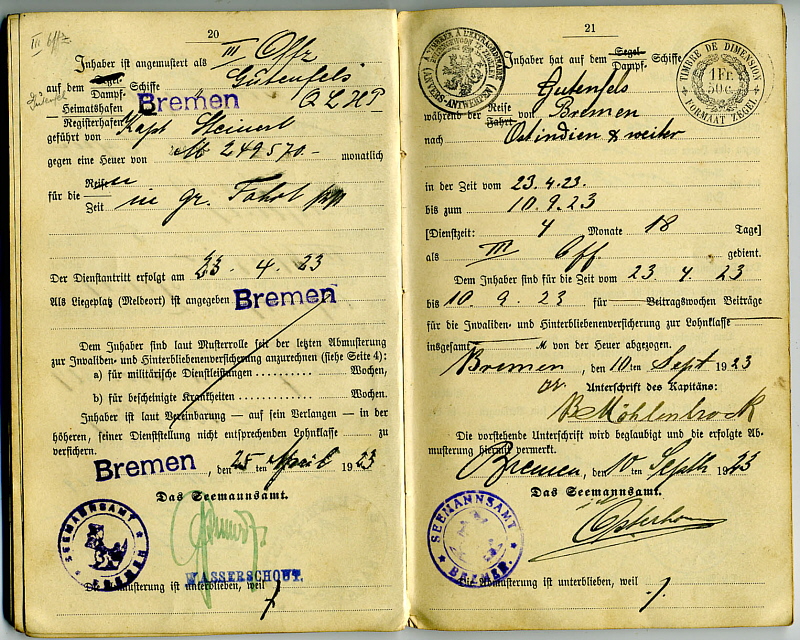 20
III Offz
Inhaber ist angemustert als III Offz
auf dem Segel- Dampf- Schiffe Gutenfels
Heimatshafen Bremen Q L H P
Registerhafen
geführt von Kapt Steinert
gegen eine Heuer von M 249570 - monatlich
für die Reise
Zeit in gr. Fahrt
Der Dienstantritt erfolgt am 23. 4. 23
Als Liegeplatz (Meldeort) ist angegeben Bremen
Dem Inhaber sind laut Musterrolle seit der letzten Abmusterung
zur Invaliden- und Hinterbliebenenversicherung anzurechnen (siehe Seite 4):
a) für militärische Dienstleistungen .......... Wochen,
b) für bescheinigte Krankheiten .......... Wochen.
Inhaber ist laut Vereinbarung — auf sein Verlangen — in der
höheren, seiner Dienststellung nicht entsprechenden Lohnklasse zu
versichern.
Bremen, den 25ten April 1923
Das Seemannsamt.
SEEMANNSAMT BREMEN
WASSERSCHOUT.
Die Abmusterung ist unterblieben, weil
21
TIMBRE DE DIMENSION
1 Fr. 50 c.
FORMAAT ZEGEL
(ANVERS-ANTWERPEN)
Inhaber hat auf dem Segel- Dampf- Schiffe
Gutenfels
während der Reise Fahrt von Bremen
nach Ostindien & weiter
in der Zeit vom 23.4.23.
bis zum 10.9.23
[Dienstzeit: 4 Monate 18 Tage]
als III Off. gedient.
Dem Inhaber sind für die Zeit vom 23 4. 23
bis 10. 9. 23 für — Beitragswochen Beiträge
für die Invaliden- und Hinterbliebenenversicherung zur Lohnklasse —
insgesamt — M von der Heuer abgezogen.
Bremen, den 10ten Sept 1923
Unterschrift des Kapitäns:
Möhlenbrock
Die vorstehende Unterschrift wird beglaubigt und die erfolgte Ab-
musterung hiermit vermerkt.
Bremen, den 10ten Septb 1923
Das Seemannsamt.
SEEMANNSAMT
Die Abmusterung ist unterblieben, weil